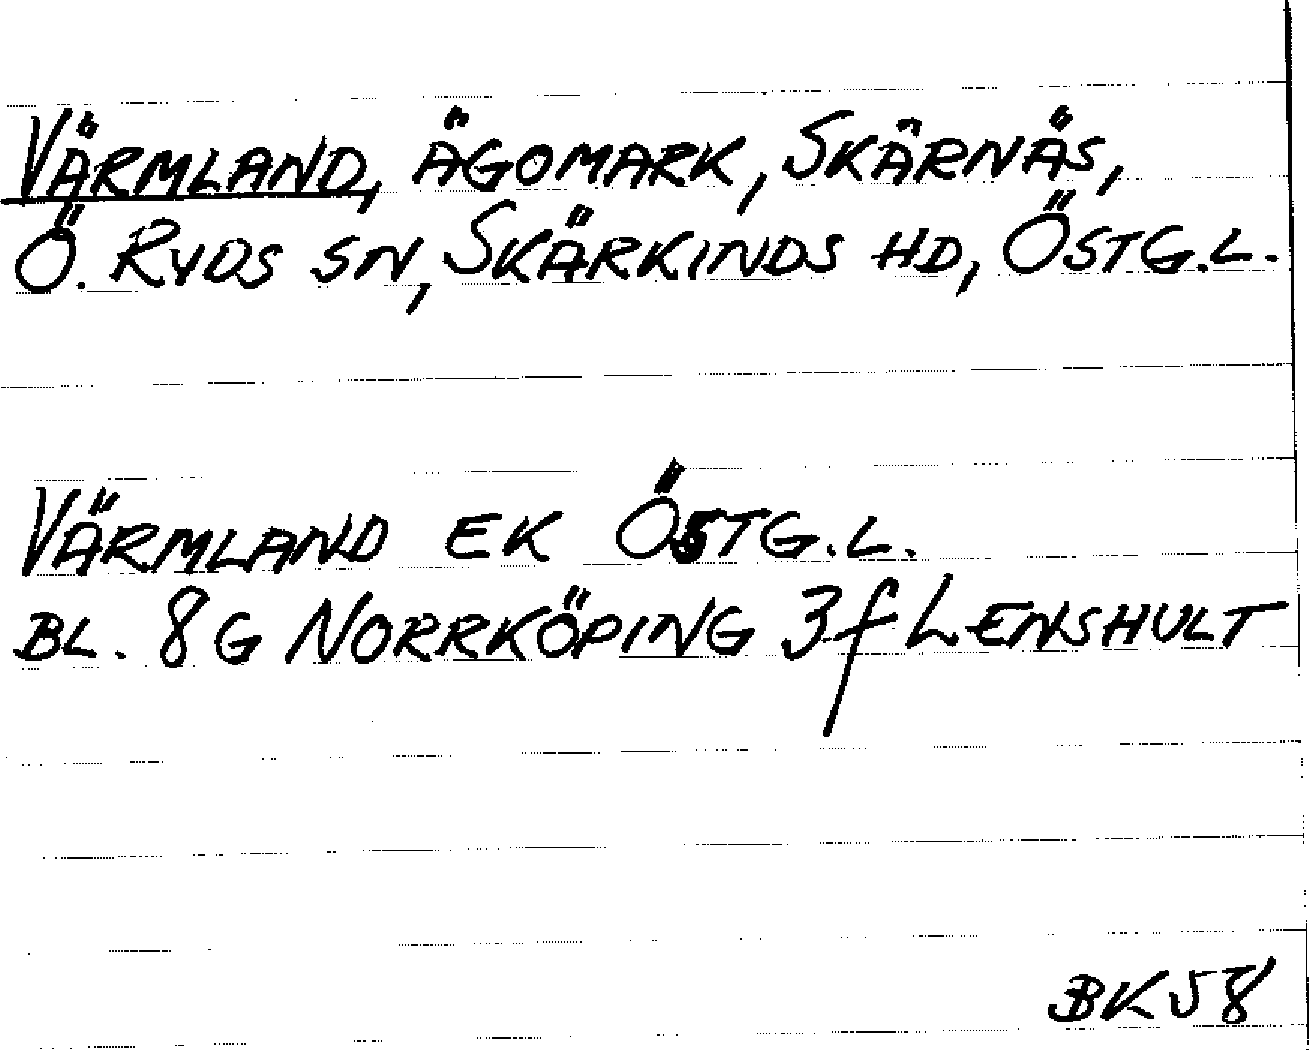 VÄRMLAND, ÄGOMARK, SKÄRNÄS,
Ö. RYDS SN, SKÄRKINDS HD, ÖSTG.L.
VÄRMLAND EK ÖSTG.L.
BL. 8G NORRKÖPING 3f LENSHULT
BK58